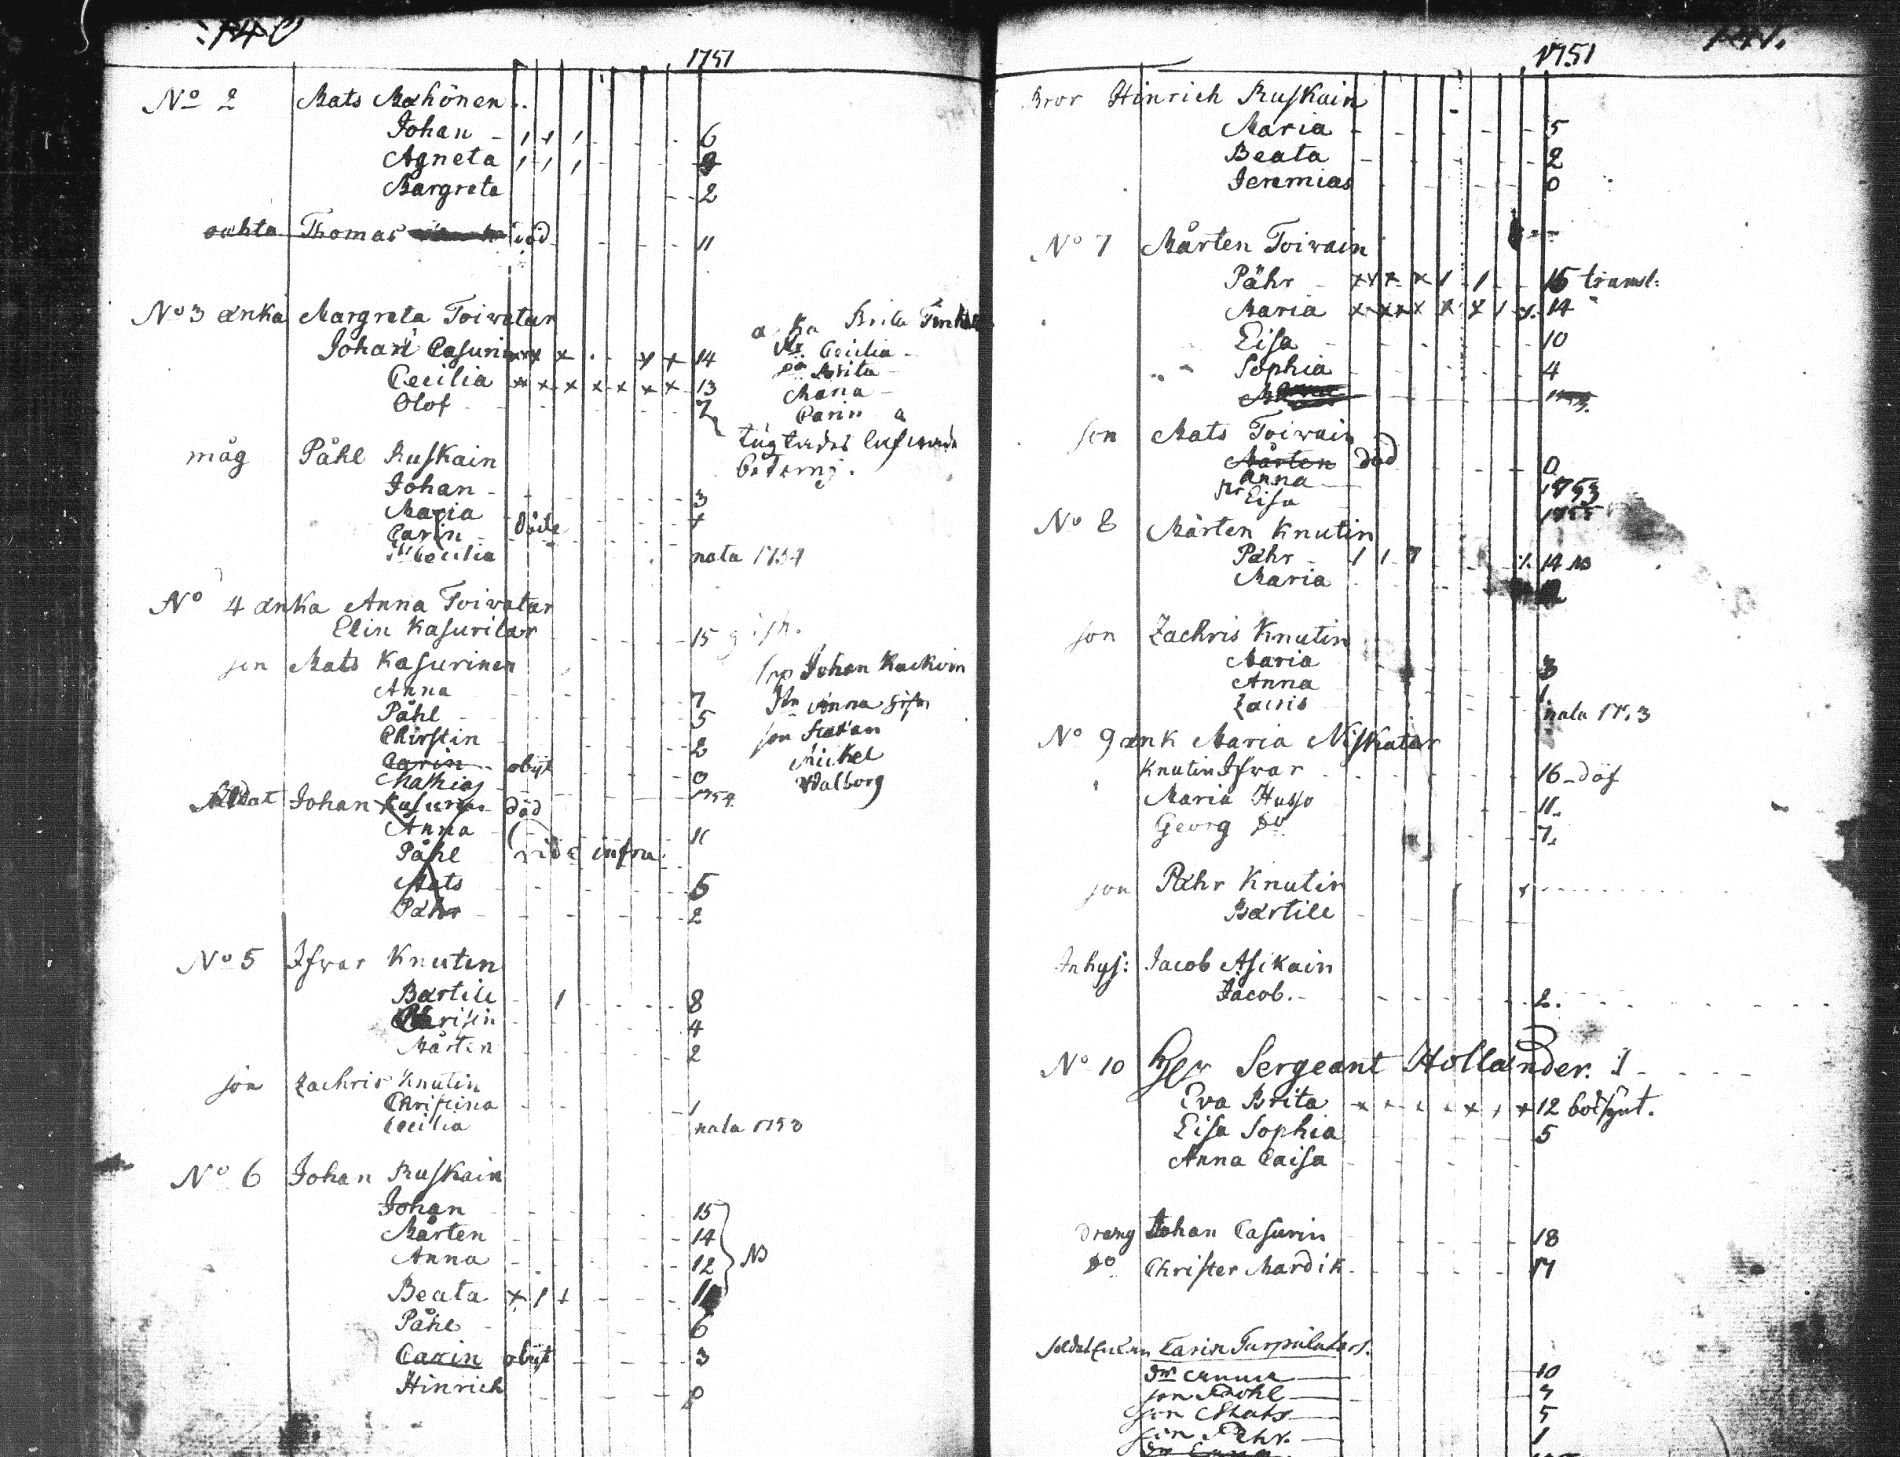 140
1751
No 2 Mats Mahönen
Johan 6
Agneta 9
Margreta 2
Thomas död 11
No 3 änka Margreta Toiwatar
Johan Casurin 14
Cecilia 13
Olof 7
Brita
Cecilia
Brita
Maria
Carin
måg Påhl Ruskain
Johan 3
Maria 1
Carin döde
Cecilia nata 1754
No 4 änka Anna Toiwatar
Elin Kasuritar 15
son Mats Kasurinen
Anna 7
Påhl 5
Chirstin 2
Carin obijt 0
Mathias 1754
Johan Kuckoin
Anna
son Staffan
Michel
Walborg
Soldat Johan Kasurin död
Anna 11
Påhl vide infra
Mats 5
Pähr 2
No 5 Ifwar Knutin
Bärtill 8
Chrisin 4
Mårten 2
son Zachris Knutin
Christina 1
Cecilia nata 1753
No 6 Johan Ruskain
Johan 15
Mårten 14
Anna 12 NB
Beata 10
Påhl 6
Carin obijt 3
Hinrich 0
141.
1751
Bror Hinrich Ruskain
Maria 5
Beata 2
Jeremias 0
No 7 Mårten Toiwain
Pähr 16 transl:
Maria 14
Elsa 10
Sophia 4
son Mats Toiwain
Mårten död 0
Anna 1753
Elsa 1755
No 8 Mårten Knutin
Pähr 14
Maria
son Zachris Knutin
Maria 3
Anna 1
Zacris nata 1753
No 9 änk Maria Niskatar
Knutin Ifwar 16 döf
Maria Husso 11
Georg Do 7
son Pähr Knutin
Bärtill
Inhys: Jacob Asikain
Jacob. 2.
No 10 Herr Sergeant Hollander.
Eva Brita 12
Elsa Sophia 5
Anna Caisa
dräng Johan Casurin 18
Do Christer Mardik 17
Carin
Anna 10
son Påhl 7
son Mats 5
son Pehr. 1